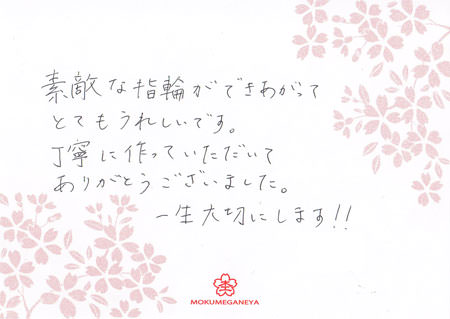 素敵な指輪ができあがって
とてもうれしいです。
丁寧に作っていただいて
ありがとうございました。
一生大切にします!!
MOKUMEGANEYA